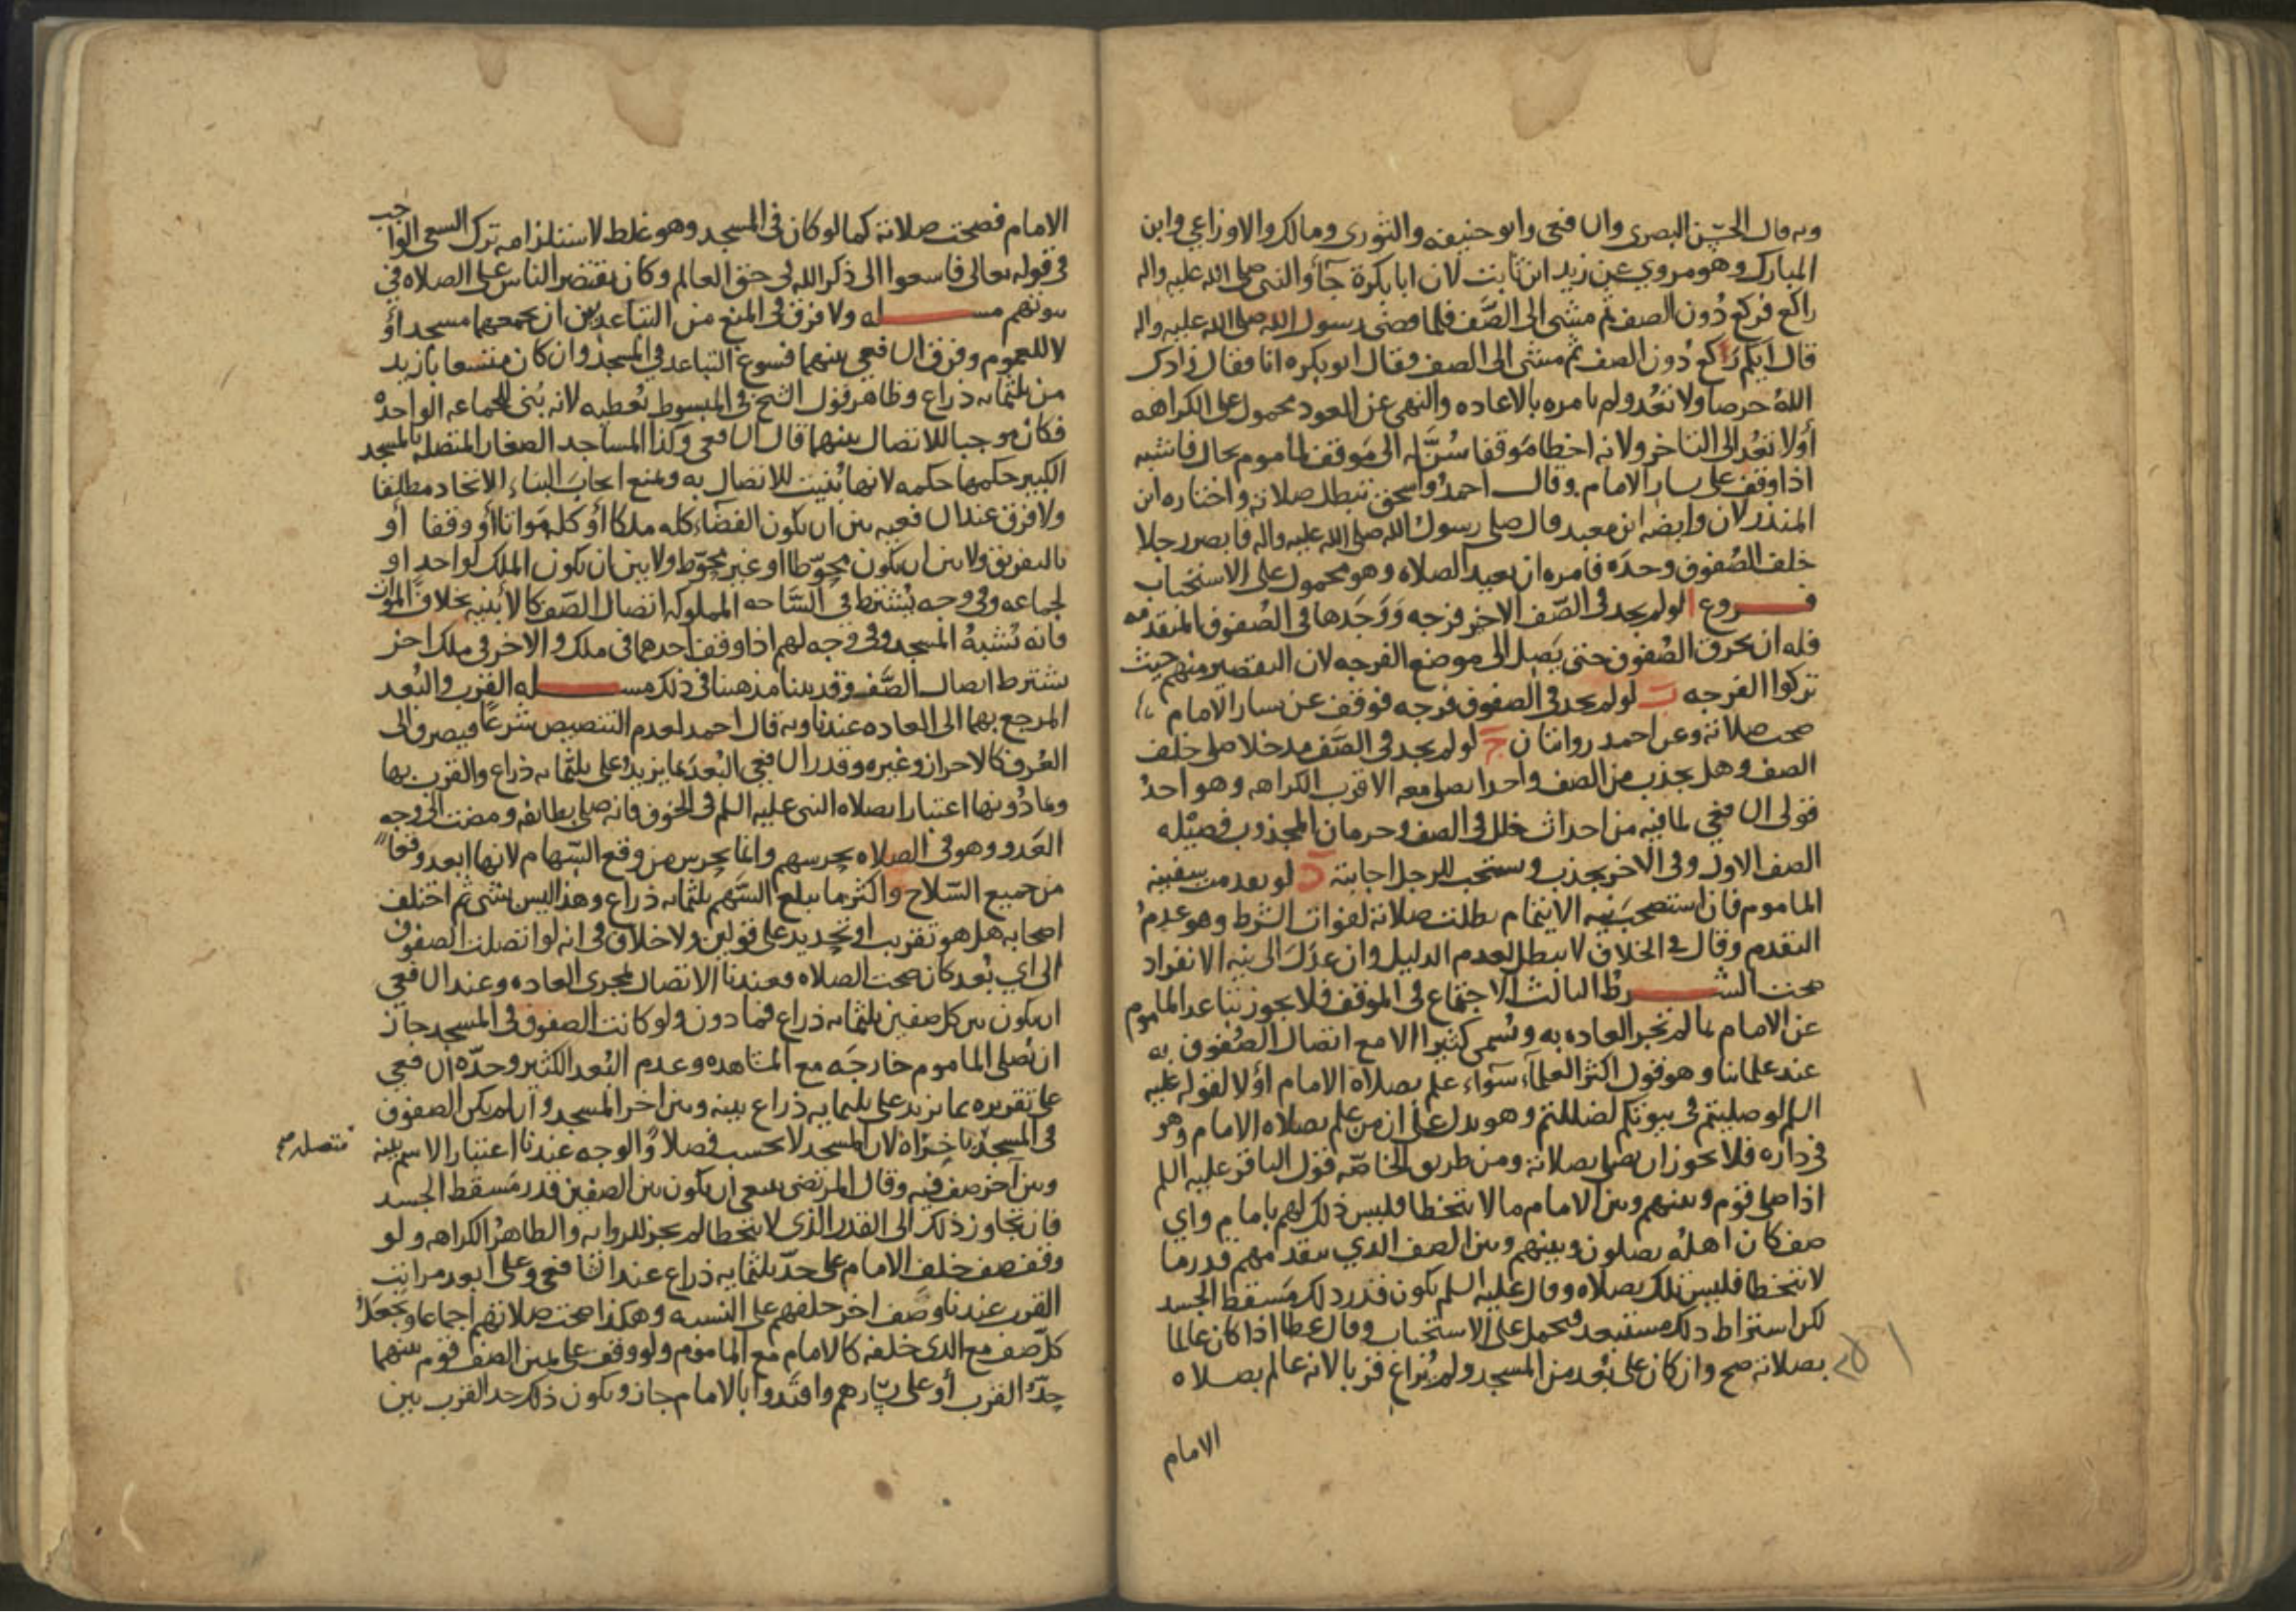 وبه قال الحسن البصرى والشافعى وابو حنيفه والثورى ومالك والاوزاعي وابن
المبارك وهو مروي عن زيد ابن ثابت لان ابا بكرة جآء والنبى صلى الله عليه واله
راكع فركع دُون الصف ثم مشى الى الصَّف فلما قضى رسول الله صلى الله عليه واله
قال ايكم ركع دون الصف ثم مشى الى الصف فقال ابو بكره انا فقال زادك
اللهُ حرصا ولا تعُد ولم يامره بالاعاده والنهى عن العود محمول على الكراهه
أو لا تعُد الى التاخر ولانه اخطا مَوقفا سُنَّ له الى مَوقف لماموم بحال فاشبه
اذا وقف على يسار الامام وقال احمدُ واسحق تبطل صلاته واختاره ابن
المنذر لان وابصه ابن معبد قال صلى رسول الله صلى الله عليه واله فابصر رجلا
خلف الصُفوف وحدَه فامره ان يعيد الصلاه وهو محمول على الاستحباب
فروع ا لو لم يجد فى الصَّف الاخر فرجه وَوَجَدها فى الصُفوف المتقدمه
فله ان يخرق الصُفوف حتى يَصِل الى موضع الفرجه لان التقصير منهم حيث
تركوا الفرجه ب لو لم يجد فى الصفوف فرجه فوقف عن يسار الامام
صحت صلاته وعن احمد روايتان ج لو لم يجد فى الصَّف مدخلا صلى خلف
الصف وهل يجذب من الصف واحدا يصلى معه الاقرب الكراهه وهو احدُ
قولى الشافعي لما فيه من احداث خلل فى الصف وحرمان المجذوب فضيله
الصف الاول وفى الاخر يجذب ويستحب للرجل اجابته د لو تقدمت سفينه
الماموم فان استصحَب نيه الايتمام بطلت صلاته لفوات الشرط وهو عدمُ
التقدم وقال فى الخلاف لا تبطل لعدم الدليل وان عدَلَ الى نيه الانفراد
صحت الشرطُ الثالث الاجتماع فى الموقف فلا يجوز تباعد الماموم
عن الامام بما لم تجر العاده به ويُسمى كثيرا الا مع اتصال الصُفوف به
عند علمائنا وهو قول اكثر العلمآء سَوآء علم بصلاة الامام أو لا لقوله عليه
السلم لو صليتم فى بيوتكم لضللتم وهو يدل على ان من علم بصلاه الامام وهو
فى داره فلا يجوز ان يصلى بصلاته ومن طريق الخاصّه قول الباقر عليه السلم
اذا صلى قوم وبينهم وبين الامام ما لا يتخطا فليس ذلك لهم بامام واي
صف كان اهله يصلون وبينهم وبين الصف الذي يتقدمهم قدر ما
لا يتخطا فليس تلك بصلاه وقال عليه السلم يكون قدر ذلك مَسقط الجسد
لكن اشتراط ذلك مستبعد فيحمل على الاستحباب وقال عطا اذا كان عالما
بصلاته صح وان كان على بُعد من المسجد ولم يُراع قربا لانه عالم بصلاه
الامام
الامام فصحت صلاته كما لو كان فى المسجد وهو غلط لاستلزامه ترك السعى الواجب
فى قوله تعالى فاسعوا الى ذكر الله فى حق العالم وكان يقتصر الناس على الصلاه في
بيوتهم مسله ولا فرق فى المنع من التباعد بين ان يجمعهما مسجد أو
لا للعموم وفرق الشافعي بينهما فسوغ التباعد فى المسجد وان كان متسعا بازيد
من ثلثمايه ذراع وظاهر قول الشيخ فى المبسوط يُعطيه لانه بُنى للجماعه الواحده
فكان موجبا للاتصال بينهما قال الشافعى وكذا المساجد الصغار المتصله بالمسجد
الكبير حكمها حكمه لانها بُنيت للاتصال به ونمنع ايجابَ البناء الاتحاد مطلقا
ولا فرق عند الشافعيه بين ان يكون الفضَاء كله ملكا أو كله مَواتا أو وقفا أو
بالتفريق ولا بين ان يكون محوّطا او غير محوّط ولا بين ان يكون الملك لواحد او
لجماعه وفى وجه يُشترط فى السَّاحه المملوكه اتصال الصّف كالأبنيه بخلاف الموات
فانه يُشبهُ المسجد وفى وجه لهم اذا وقف احدهما فى ملك والاخر فى ملك اخر
يشترط اتصال الصَّف وقد بينا مذهبنا فى ذلك مسله القرب والبُعد
المرجع بهما الى العاده عندنا وبه قال احمد لعدم التنصيص شرعًا فيصرف الى
العُرف كالاحراز وغيره وقدر الشافعي البُعدَ بما يزيدُ على ثلثمايه ذراع والقرب بها
وبما دُونها اعتبارا بصلاه النبى عليه السلم فى الخوف فانه صلى بطائفه ومضت الى وجه
العَدو وهو فى الصلاه يحرسهم وانما يحرس من وقع السّهام لانها ابعد وقعا
من جميع السّلاح واكثر ما يبلع السَّهم ثلثمايه ذراع وهذا ليس بشى ثم اختلف
اصحابه هل هو تقريب او تحديد على قولين ولا خلاف فى انه لو اتصلت الصفوف
الى اي بُعد كان صحت الصلاه فعندنا الاتصال بمجرى العاده وعند الشافعي
ان يكون بين كل صفين ثلثمايه ذراع فما دون ولو كانت الصفوف فى المسجد جاز
ان يُصلى الماموم خارجَه مع المشاهده وعدم البُعد الكثير وحدّه الشافعي
على تقريره بما يزيد على ثلثمايه ذراع بينه وبين اخر المسجد وان لم يكن الصفوف
متصله صح
فى المسجد باخِرَاه لان المسجد لا يحسب فصلا والوجه عندنا اعتبار الاسم بينه
وبين آخر صف فيه وقال المرتضى ينبغى ان يكون بين الصفين قدر مَسقط الجسد
فان تجاوز ذلك الى القدر الذى لا يتخطا لم يجز للروايه والظاهر الكراهه ولو
وقف صف خلف الامام على حدّ ثلثمايه ذراع عند الشافعى وعلى ابعد مراتب
القرب عندنا وصَف اخر خلفهم على النسبه وهكذا صحت صلاتهم اجماعا ويُجعَلُ
كلّ صف مع الذى خلفه كالامام مع الماموم ولو وقف على يمين الصف قوم بينهما
حدُّ القرب أو على يسارهم واقتدوا بالامام جاز ويكون ذلك حد القرب بين